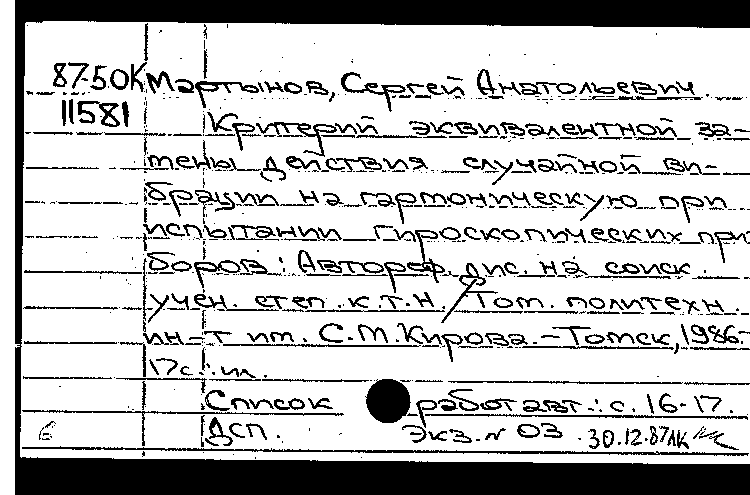 87-50К Мартынов, Сергей Анатольевич.
11581 Критерий эквивалентной за-
мены действия случайной ви-
брации на гармоническую при
испытании гироскопических при
боров : Автореф. дис. на соиск.
учен. степ. к.т.н. / Том. политехн.
ин-т им. С.М.Кирова.-Томск, 1986.-
17с.:ил.
Список работ авт.: с. 16-17.
Дсп. Экз. N 03 . 30.12.87ЛК
6